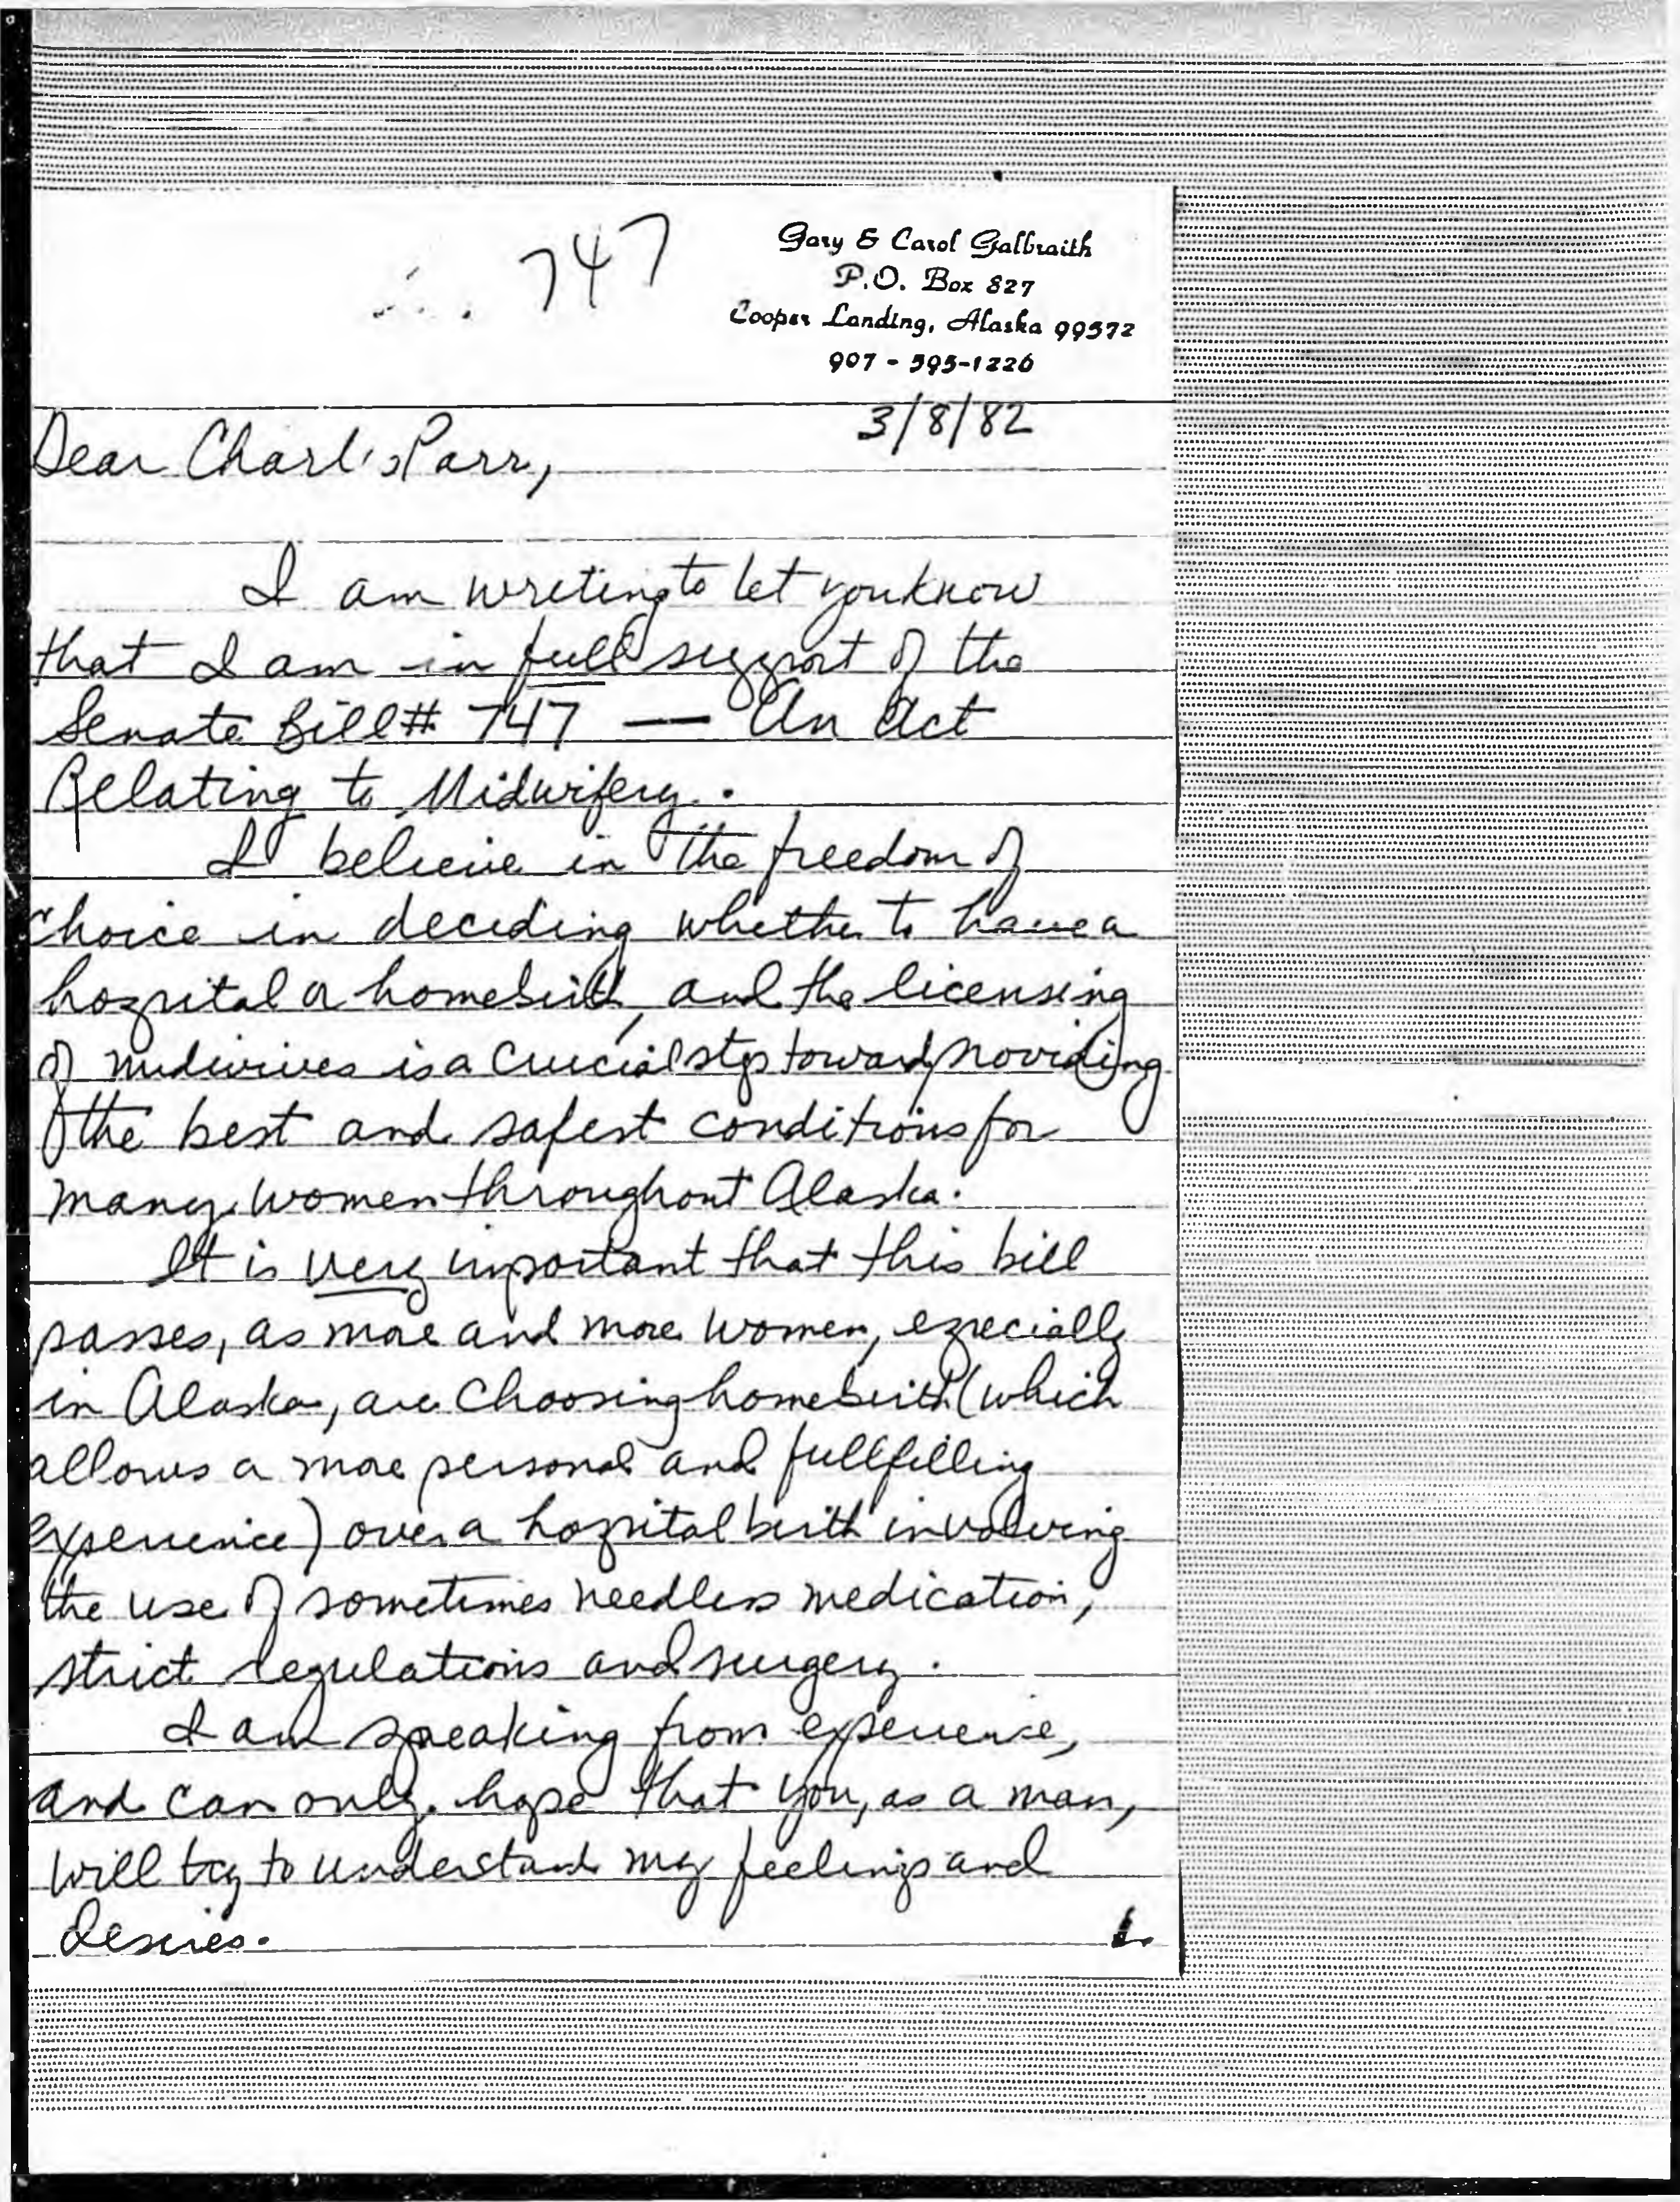 747
Gary & Carol Galbraith
P.O. Box 827
Cooper Landing, Alaska 99572
907 - 595-1226
3/8/82
Dear Charlie Parr,
I am writing to let you know
that I am in full support of the
Senate Bill # 747 — An Act
Relating to Midwifery.
I believe in the freedom of
choice in deciding whether to have a
hospital or homebirth, and the licensing
of midwives is a crucial step toward providing
the best and safest conditions for
many women throughout Alaska.
It is very important that this bill
passes, as more and more women, especially
in Alaska, are choosing homebirth (which
allows a more personal and fullfilling
experience) over a hospital birth involving
the use of sometimes needless medication,
strict regulations and surgery.
I am speaking from experience,
and can only hope that you, as a man,
will try to understand my feelings and
desires.